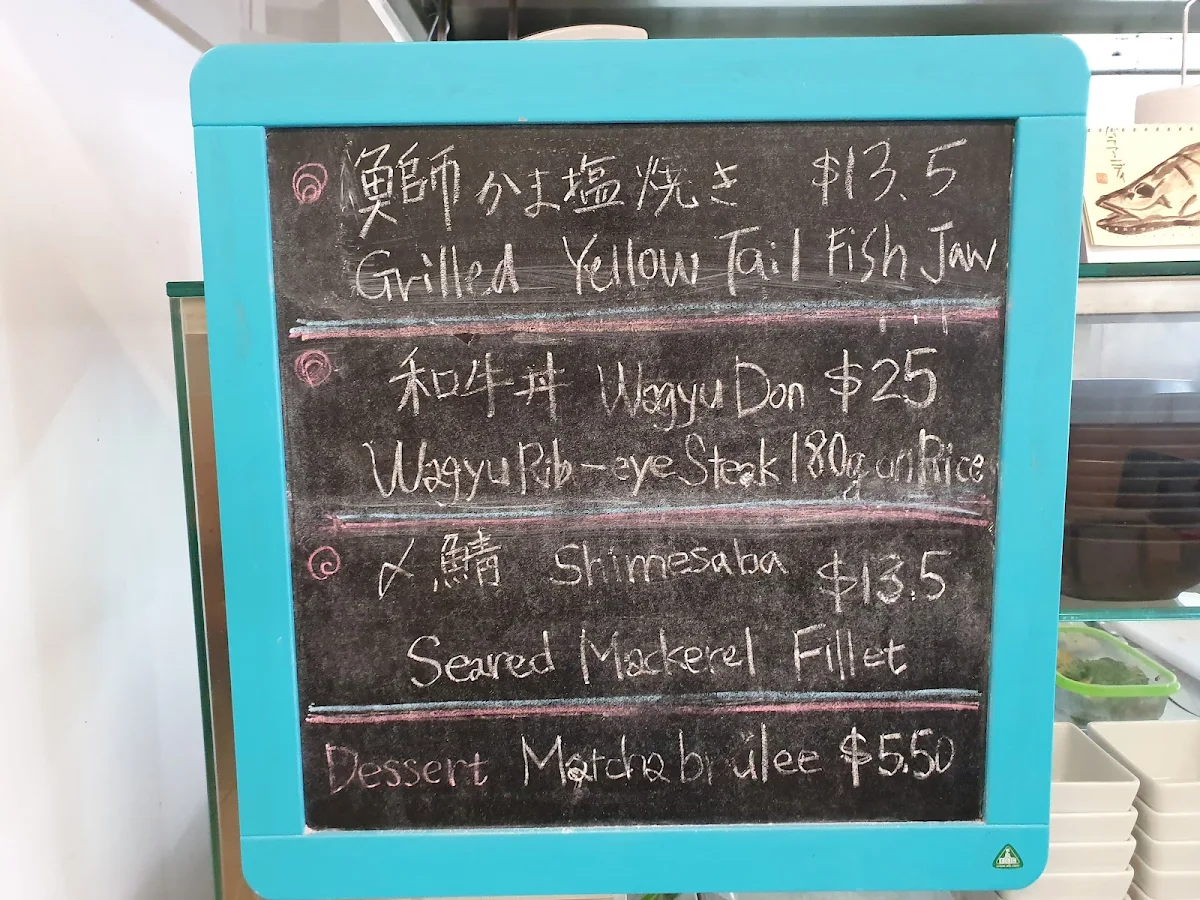 漁師かま塩焼き $13.5
Grilled Yellow Tail Fish Jaw
和牛丼 Wagyu Don $25
Wagyu Rib-eye Steak 180g on Rice
〆鯖 Shimesaba $13.5
Seared Mackerel Fillet
Dessert Matcha brûlee $5.50